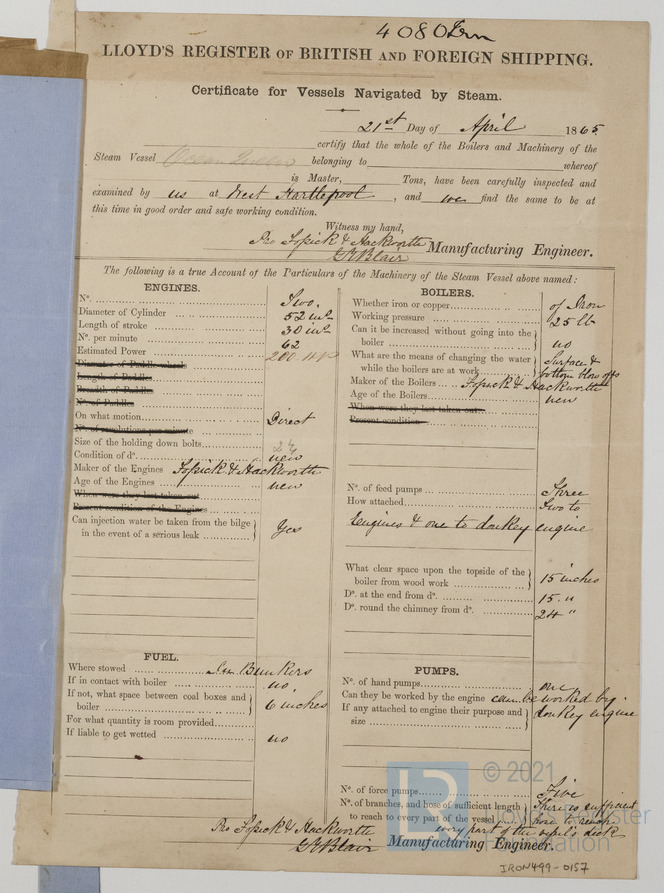 4080 Irn
LLOYD'S REGISTER OF BRITISH AND FOREIGN SHIPPING.
Certificate for Vessels Navigated by Steam.
21st Day of April 1865
certify that the whole of the Boilers and Machinery of the
Steam Vessel Ocean Queen belonging to whereof
is Master, Tons, have been carefully inspected and
examined by us at West Hartlepool, and we find the same to be at
this time in good order and safe working condition.
Witness my hand,
Pro Fossick & Hackworth Manufacturing Engineer.
G Blair
The following is a true Account of the Particulars of the Machinery of the Steam Vessel above named:
ENGINES.
Nº. Two.
Diameter of Cylinder 52 ins
Length of stroke 30 ins
Nº. per minute 62
Estimated Power 200 HP
Diameter of Paddle wheels
Length of Paddles
Breadth of Paddles
Nº. of Paddles
On what motion Direct
Nº. of revolutions per minute
Size of the holding down bolts
Condition of dº. new
Maker of the Engines Fossick & Hackworth
Age of the Engines new
When were they last taken out
Present condition of the Engines
Can injection water be taken from the bilge
in the event of a serious leak Yes
FUEL.
Where stowed In Bunkers
If in contact with boiler no.
If not, what space between coal boxes and
boiler 6 inches
For what quantity is room provided
If liable to get wetted no
BOILERS.
Whether iron or copper of Iron
Working pressure 25 lb
Can it be increased without going into the
boiler no
What are the means of changing the water
while the boilers are at work Surface &
bottom blow offs
Maker of the Boilers Fossick & Hackworth
Age of the Boilers new
When were they last taken out
Present condition
Nº. of feed pumps Three
How attached Two to
Engines & one to donkey engine
What clear space upon the topside of the
boiler from wood work 15 inches
Dº. at the end from dº. 15 "
Dº. round the chimney from dº. 24 "
PUMPS.
Nº. of hand pumps one
Can they be worked by the engine can be worked by
If any attached to engine their purpose and
size donkey engine
Nº. of force pumps Five
Nº. of branches, and hose of sufficient length
to reach to every part of the vessel There is sufficient
hose to reach
every part of the vessel's deck
Pro Fossick & Hackworth
G Blair Manufacturing Engineer.
© 2021
Lloyd's Register
Foundation
IRON499-0157